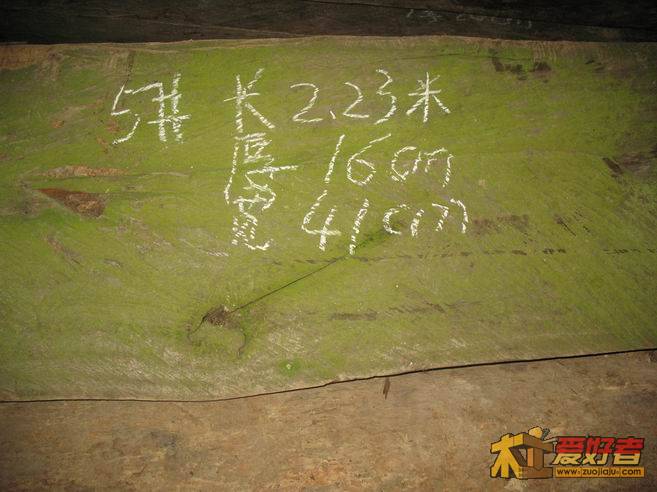 5# 长 2.23米
厚 16cm
宽 41cm
木工爱好者
www.zuojiaju.com